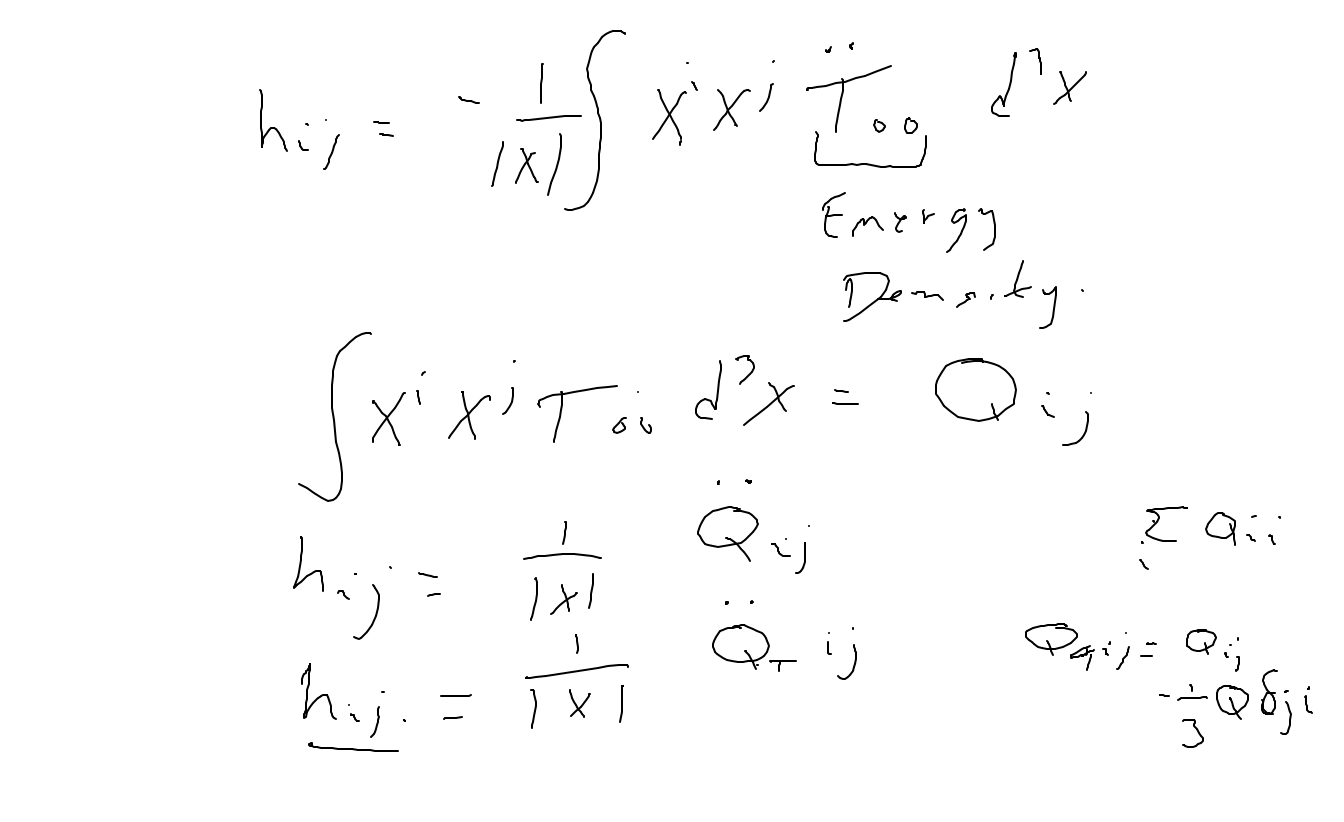 h_{ij} = -\frac{1}{|x|} \int x^i x^j \ddot{T}_{00} d^3x
Energy
Density.
\int x^i x^j T_{00} d^3x = Q_{ij}
h_{ij} = \frac{1}{|x|} \ddot{Q}_{ij}
\sum_i Q_{ii}
h_{ij} = \frac{1}{|x|} \ddot{Q}_{T ij}
= Q_{ij}
-\frac{1}{3} Q δ_{ji}